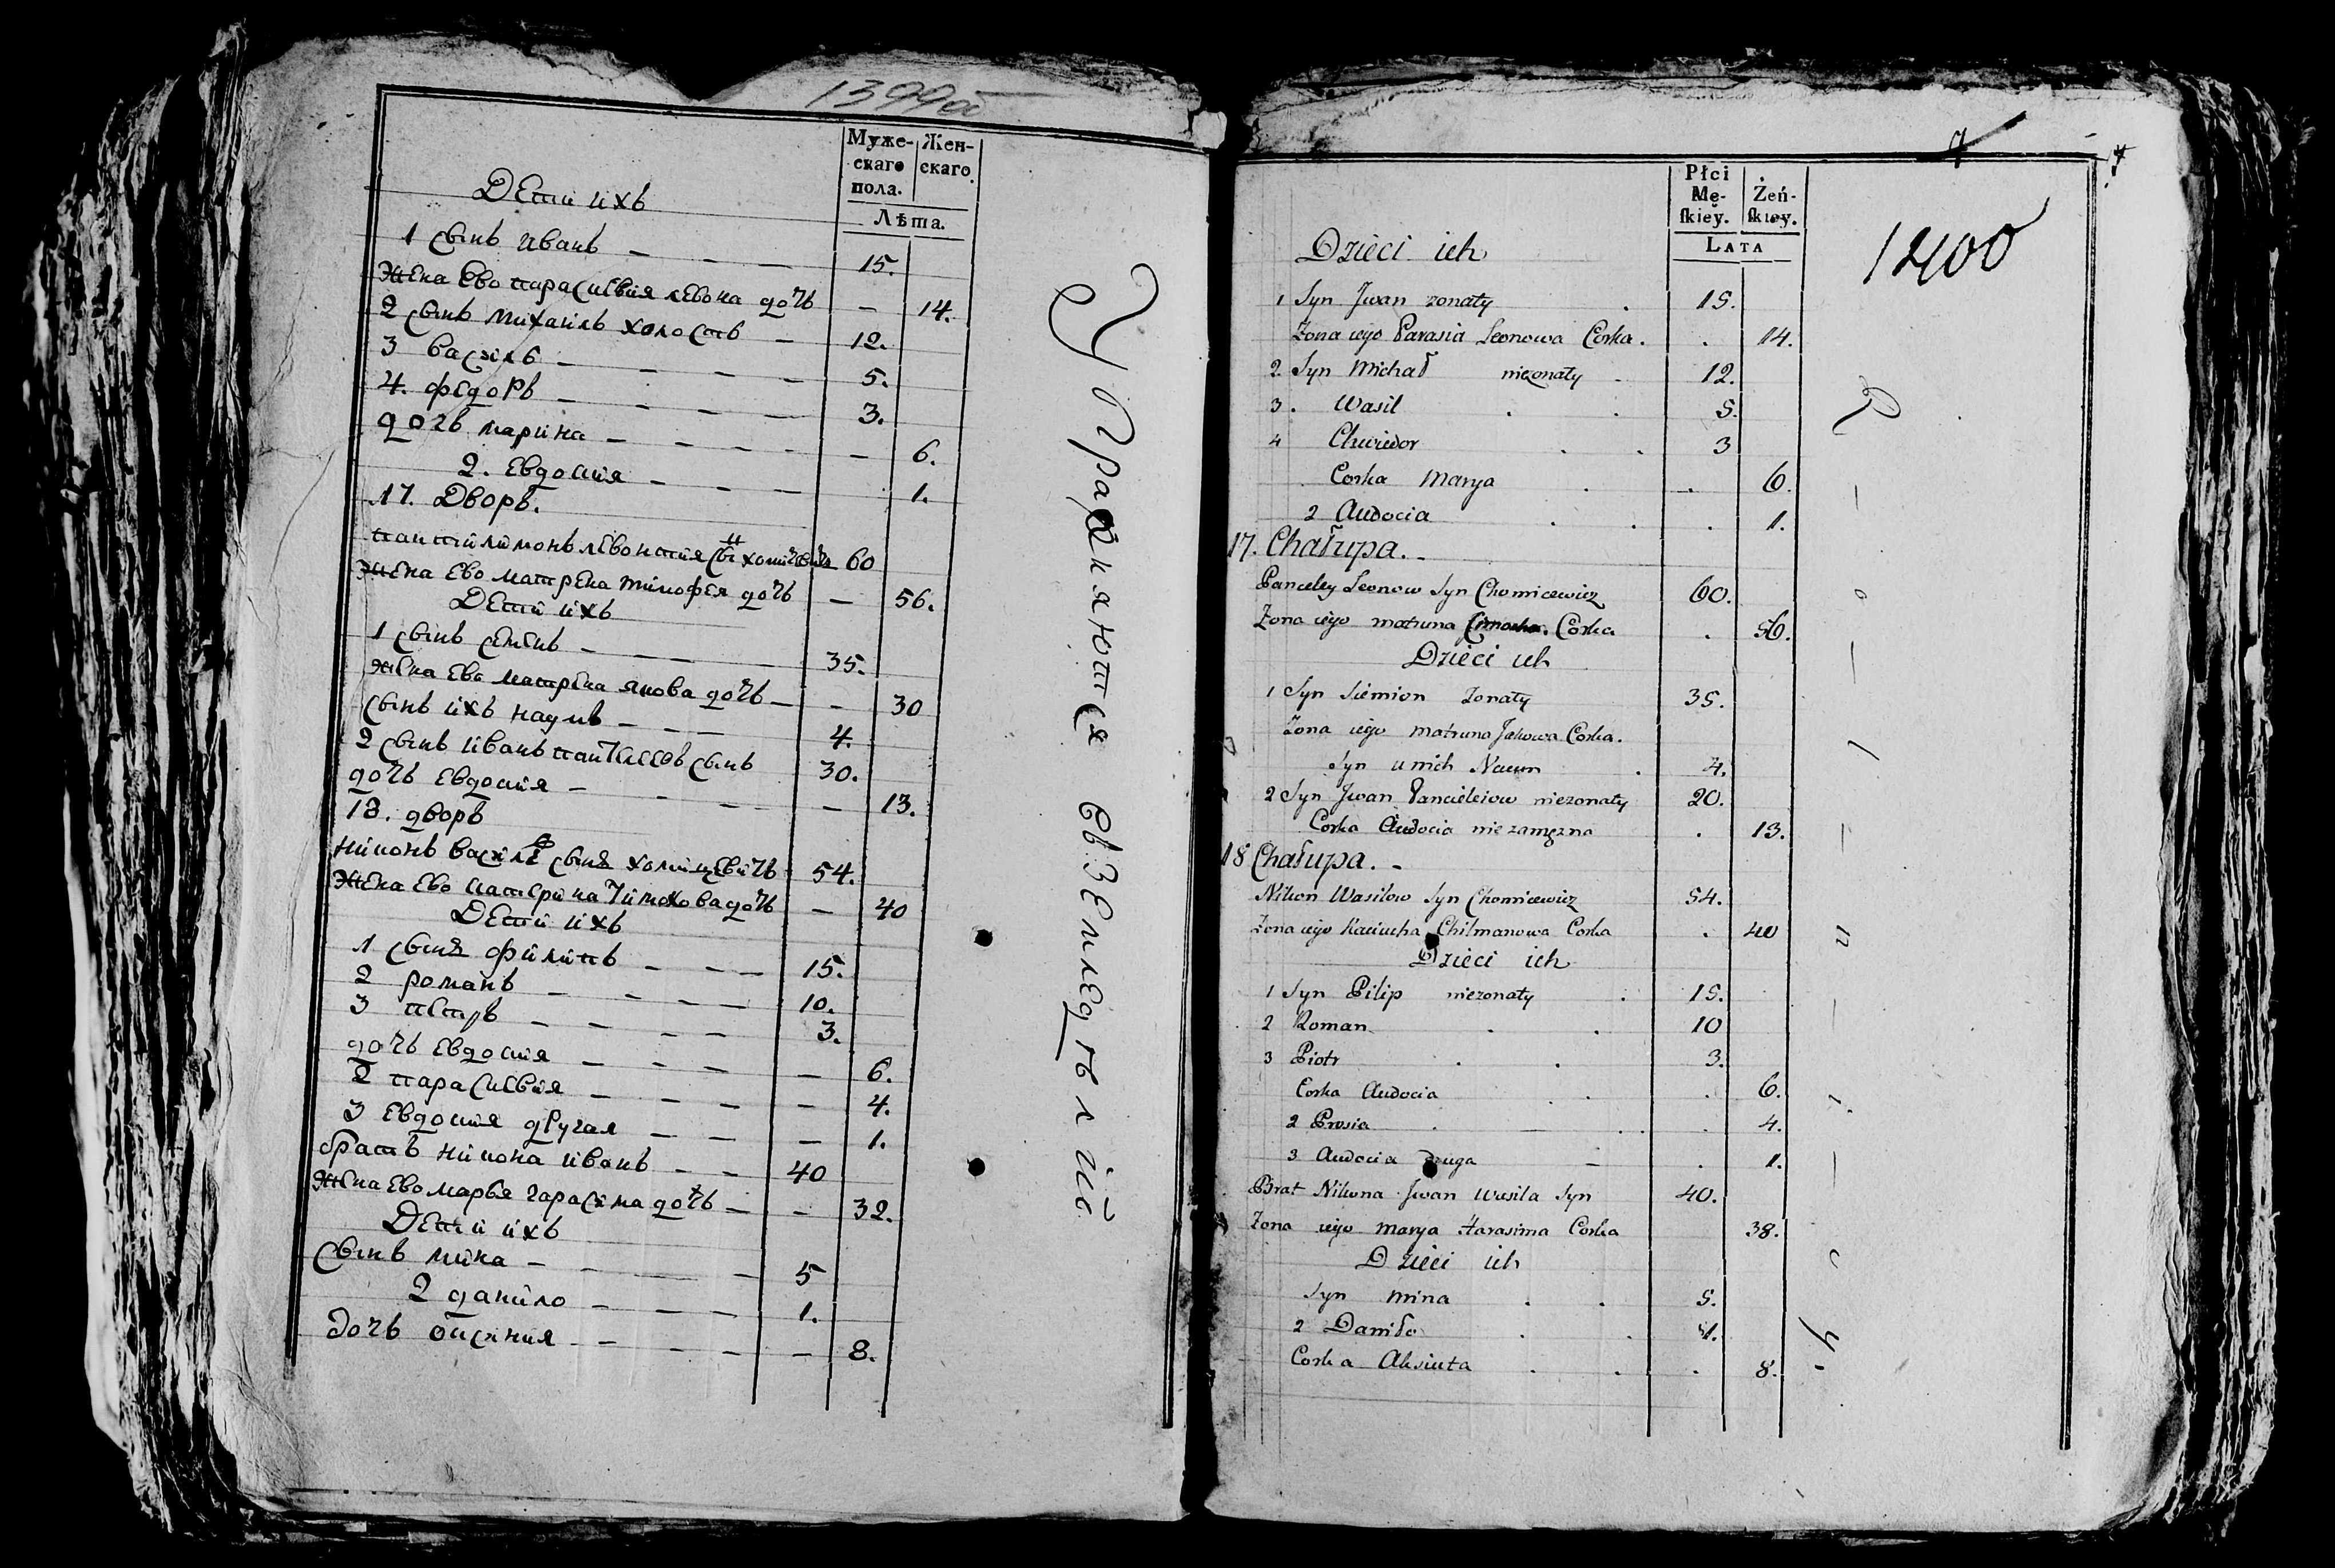 1399об
Муже-скаго пола. Жен-скаго.
Лѣта.
Дети ихъ
1 сынъ иванъ — — — 15.
Жена Ево парасковия левона дочь — 14.
2 сынъ михаилъ холостъ — 12.
3 василь — — — — 5.
4. федоръ — — — — 3.
дочь марина — — — — 6.
2. Евдокия — — — 1.
17. Дворъ.
60
Жена Ево матрена тимофея дочь — 56.
Дети ихъ
1 сынъ семенъ — — — 35.
Жена Ево матрена якова дочь — — 30
сынъ ихъ наумъ — — — 4.
2 сынъ иванъ сынъ 30.
дочь Евдокия — — — — 13.
18. дворъ
никонъ василя сынъ хомицевичь 54.
Жена Ево катерина дочь — 40
Дети ихъ
1 сынъ филипъ — — — 15.
2 романъ — — — — 10.
3 петръ — — — — 3.
дочь Евдокия — — — — 6.
2 парасковия — — — — 4.
3 Евдокия другая — — — 1.
братъ никона иванъ — — 40
Жена Ево марья гарасима дочь — — 32.
Дети ихъ
сынъ мина — — — — 5
2 данило — — — 1.
дочь оксиния — — — — 8.
Упражняются въ Земледѣліи
7
7
1400
Płci Mę-ſkiey. Żeń-ſkiey.
LATA
Dzieci ich
1 Syn Jwan zonaty . 15.
Zona iego Parasia Leonowa Corka . . 14.
2. Syn Michał niezonaty . 12.
3. Wasil . . 5.
4 Chwiedor . . 3
Corka Marya . . 6.
2 Audocia . . . 1.
17. Chałupa. -
Panceley Leonow Syn Chomicewicz 60.
Zona iego matruna Corka . 56.
Dzieci ich
1 Syn Siemion Zonaty 35.
Zona iego matruna Jakowa Corka.
Syn u nich Naum . 4.
2 Syn Jwan Pancieleiow niezonaty 20.
Corka Audocia nie zamęzna . 13.
18 Chałupa. -
Nikon Wasilow Syn Chomicewicz 54.
Zona iego Kaciucha Chilmanowa Corka . 40
Dzieci ich
1 Syn Pilip niezonaty . 15.
2 Roman . . 10
3 Piotr . . 3.
Corka Audocia . . . 6.
2 Prosia . . . . 4.
3 Audocia druga - . 1.
Brat Nikona Jwan Wasila Syn 40.
Zona iego Marya Harasima Corka 38.
Dzieci ich
Syn mina . . 5.
2 Daniło . . 1.
Corka Aksiuta . . . 8.
R - o - l - n - i - c y.